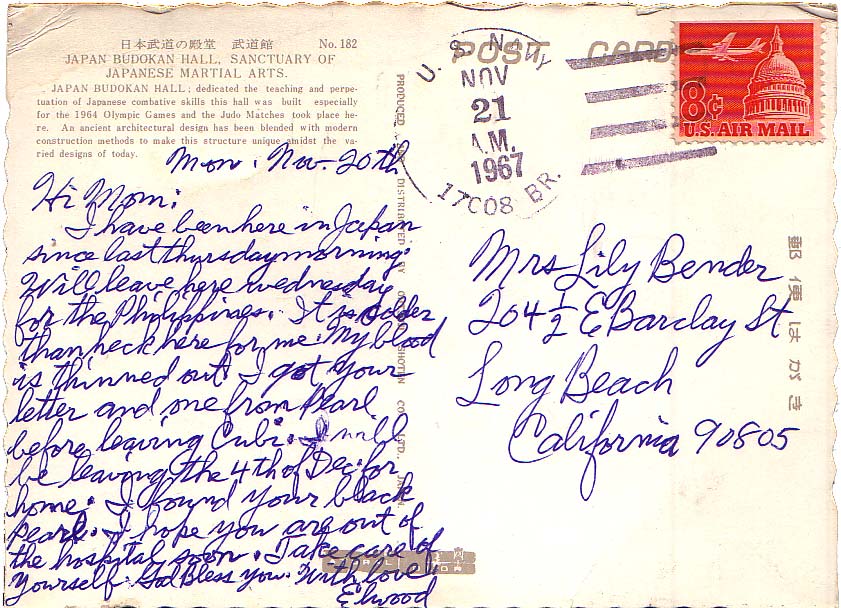 日本武道の殿堂 武道館 No. 182
JAPAN BUDOKAN HALL, SANCTUARY OF
JAPANESE MARTIAL ARTS.
JAPAN BUDOKAN HALL; dedicated the teaching and perpe-
tuation of Japanese combative skills this hall was built especially
for the 1964 Olympic Games and the Judo Matches took place he-
re. An ancient architectural design has been blended with modern
construction methods to make this structure unique amidst the va-
ried designs of today.
POST CARD
U. S. NAVY
NOV
21
A.M.
1967
17C08 BR.
8¢
U.S. AIR MAIL
Mon. Nov. 20th
Hi Mom:
I have been here in Japan
since last thursday morning.
Will leave here wednesday
for the Philippines. It is colder
than heck here for me. My blood
is thinned out. I got your
letter and one from Pearl
before leaving Cubi. I will
be leaving the 4th of Dec. for
home. I found your black
Pearl. I hope you are out of
the hospital soon. Take care of
Yourself. God Bless you. With love
Elwood
PRODUCED AND DISTRIBUTED BY CO., LTD.
Mrs Lily Bender
204 1/2 E Barclay St
Long Beach
California 90805
郵便はがき